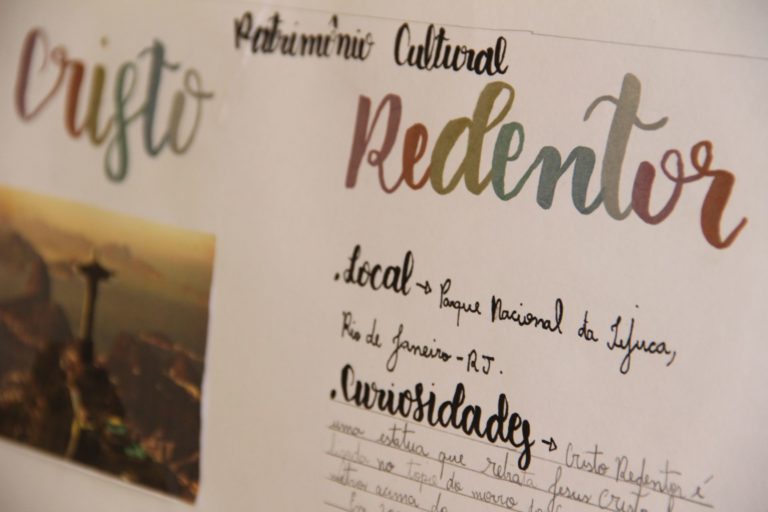 Patrimônio Cultural
Cristo Redentor
.Local → Parque Nacional da Tijuca,
Rio de Janeiro - RJ.
.Curiosidades → Cristo Redentor é
uma estatua que retrata Jesus Cristo
no topo do morro
metros acima do
Em